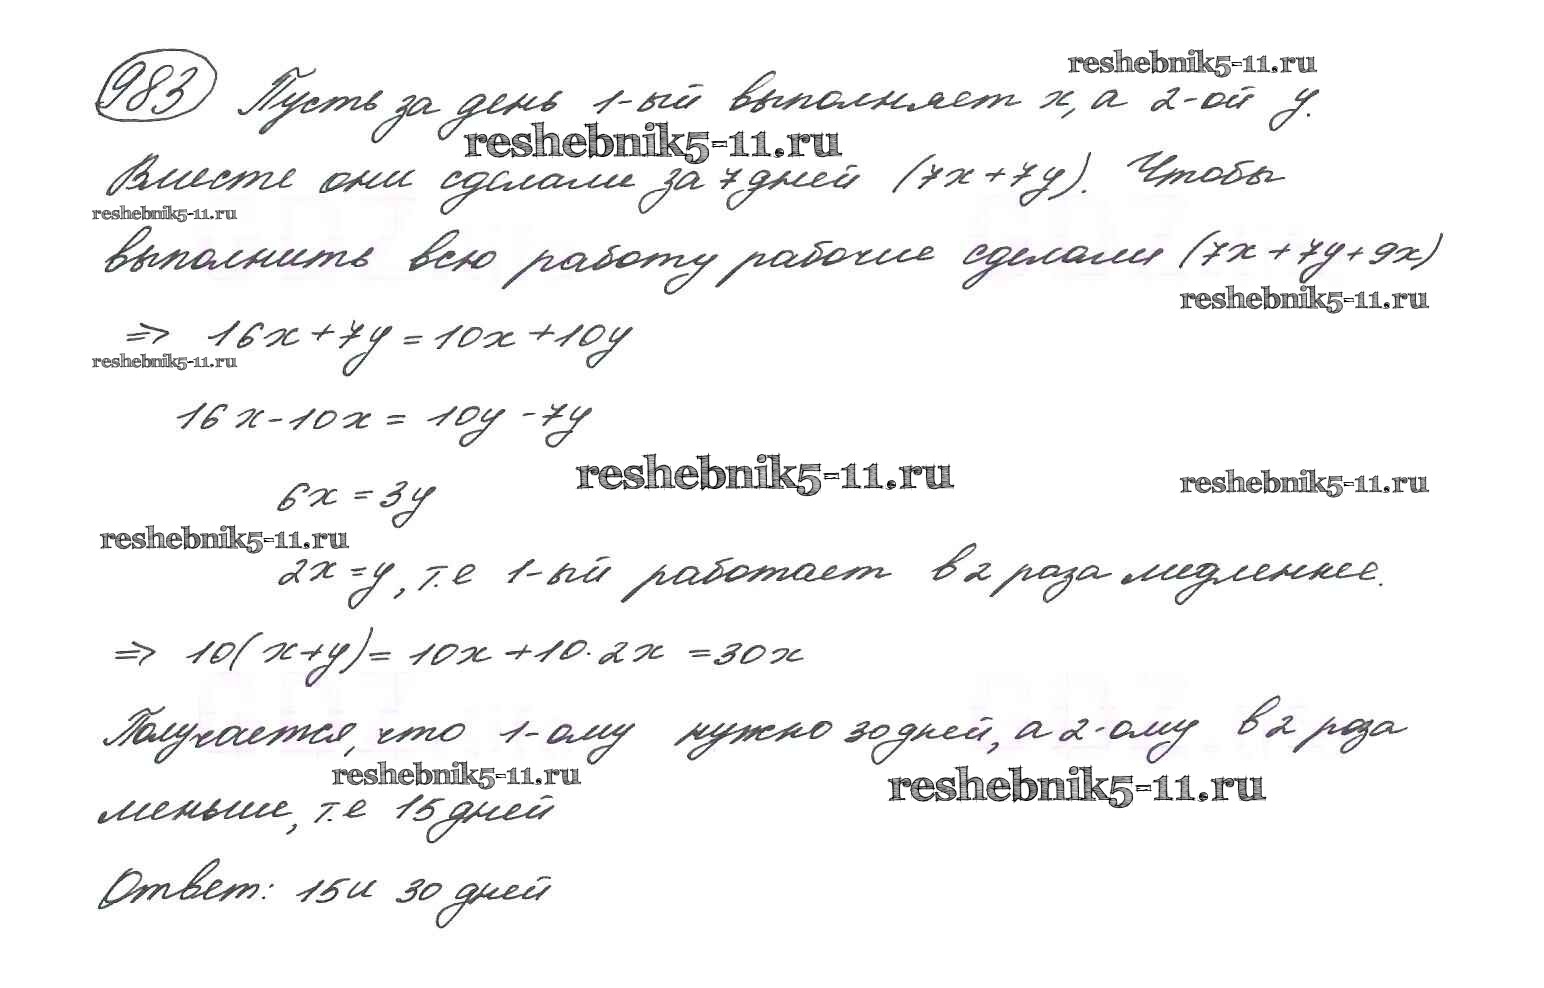 983 Пусть за день 1-ый выполняет x, а 2-ой y.
reshebnik5-11.ru
reshebnik5-11.ru
Вместе они сделали за 7 дней (7x+7y). Чтобы
reshebnik5-11.ru
выполнить всю работу рабочие сделали (7x+7y+9x)
reshebnik5-11.ru
=> 16x+7y=10x+10y
reshebnik5-11.ru
16x-10x=10y-7y
reshebnik5-11.ru
reshebnik5-11.ru
6x=3y
reshebnik5-11.ru
2x=y, т.е 1-ый работает в 2 раза медленнее.
=> 10(x+y)=10x+10·2x=30x
Получается, что 1-ому нужно 30 дней, а 2-ому в 2 раза
reshebnik5-11.ru
reshebnik5-11.ru
меньше, т.е 15 дней
Ответ: 15 и 30 дней